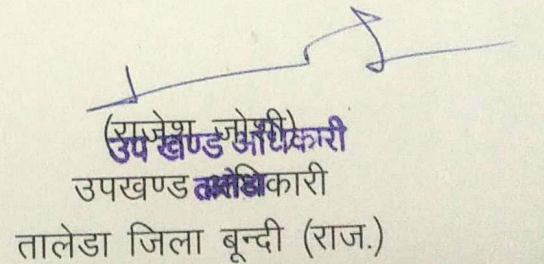 (राजेश जोशी)
उप खण्ड अधिकारी
उपखण्ड अधिकारी
तालेडा
तालेडा जिला बून्दी (राज.)